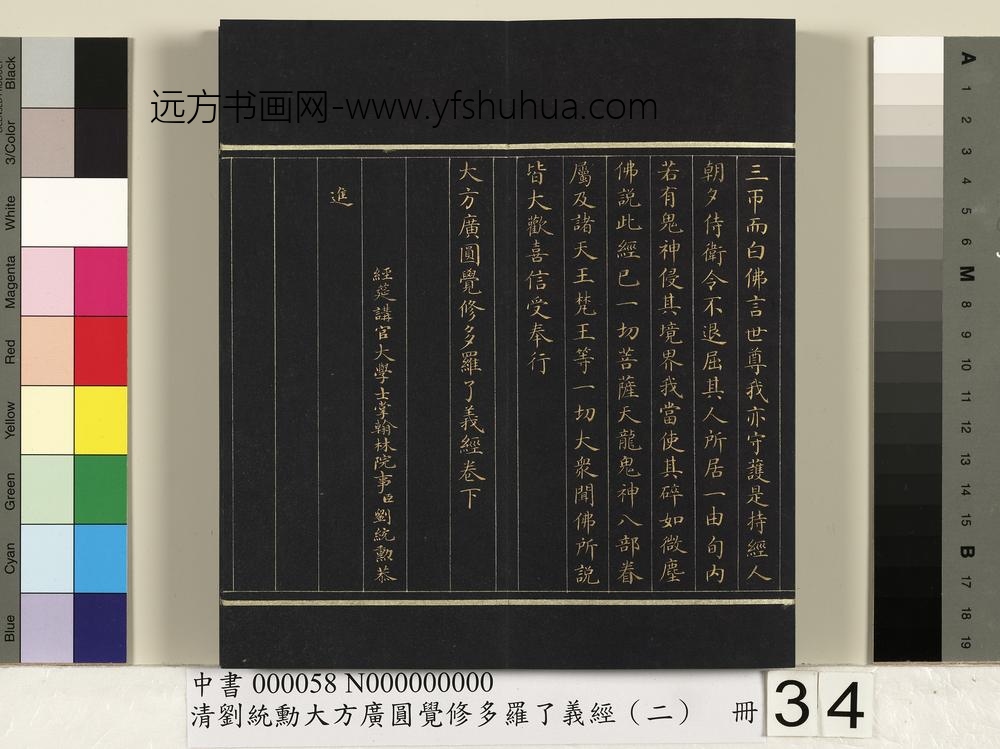 远方书画网-www.yfshuhua.com
三帀而白佛言世尊我亦守護是持經人
朝夕侍衛令不退屈其人所居一由旬內
若有鬼神侵其境界我當使其碎如微塵
佛說此經已一切菩薩天龍鬼神八部眷
屬及諸天王梵王等一切大衆聞佛所說
皆大歡喜信受奉行
大方廣圓覺修多羅了義經卷下
經筵講官大學士掌翰林院事臣劉統勳恭
進
Black
3/Color
White
Magenta
Red
Yellow
Green
Cyan
Blue
A
1
2
3
4
5
6
M
8
9
10
11
12
13
14
15
B
17
18
19
中書 000058 N000000000
清劉統勳大方廣圓覺修多羅了義經（二） 冊
34